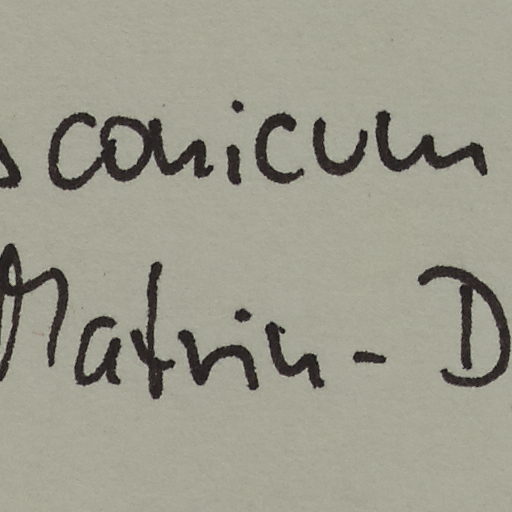 conicum
Matrin - D